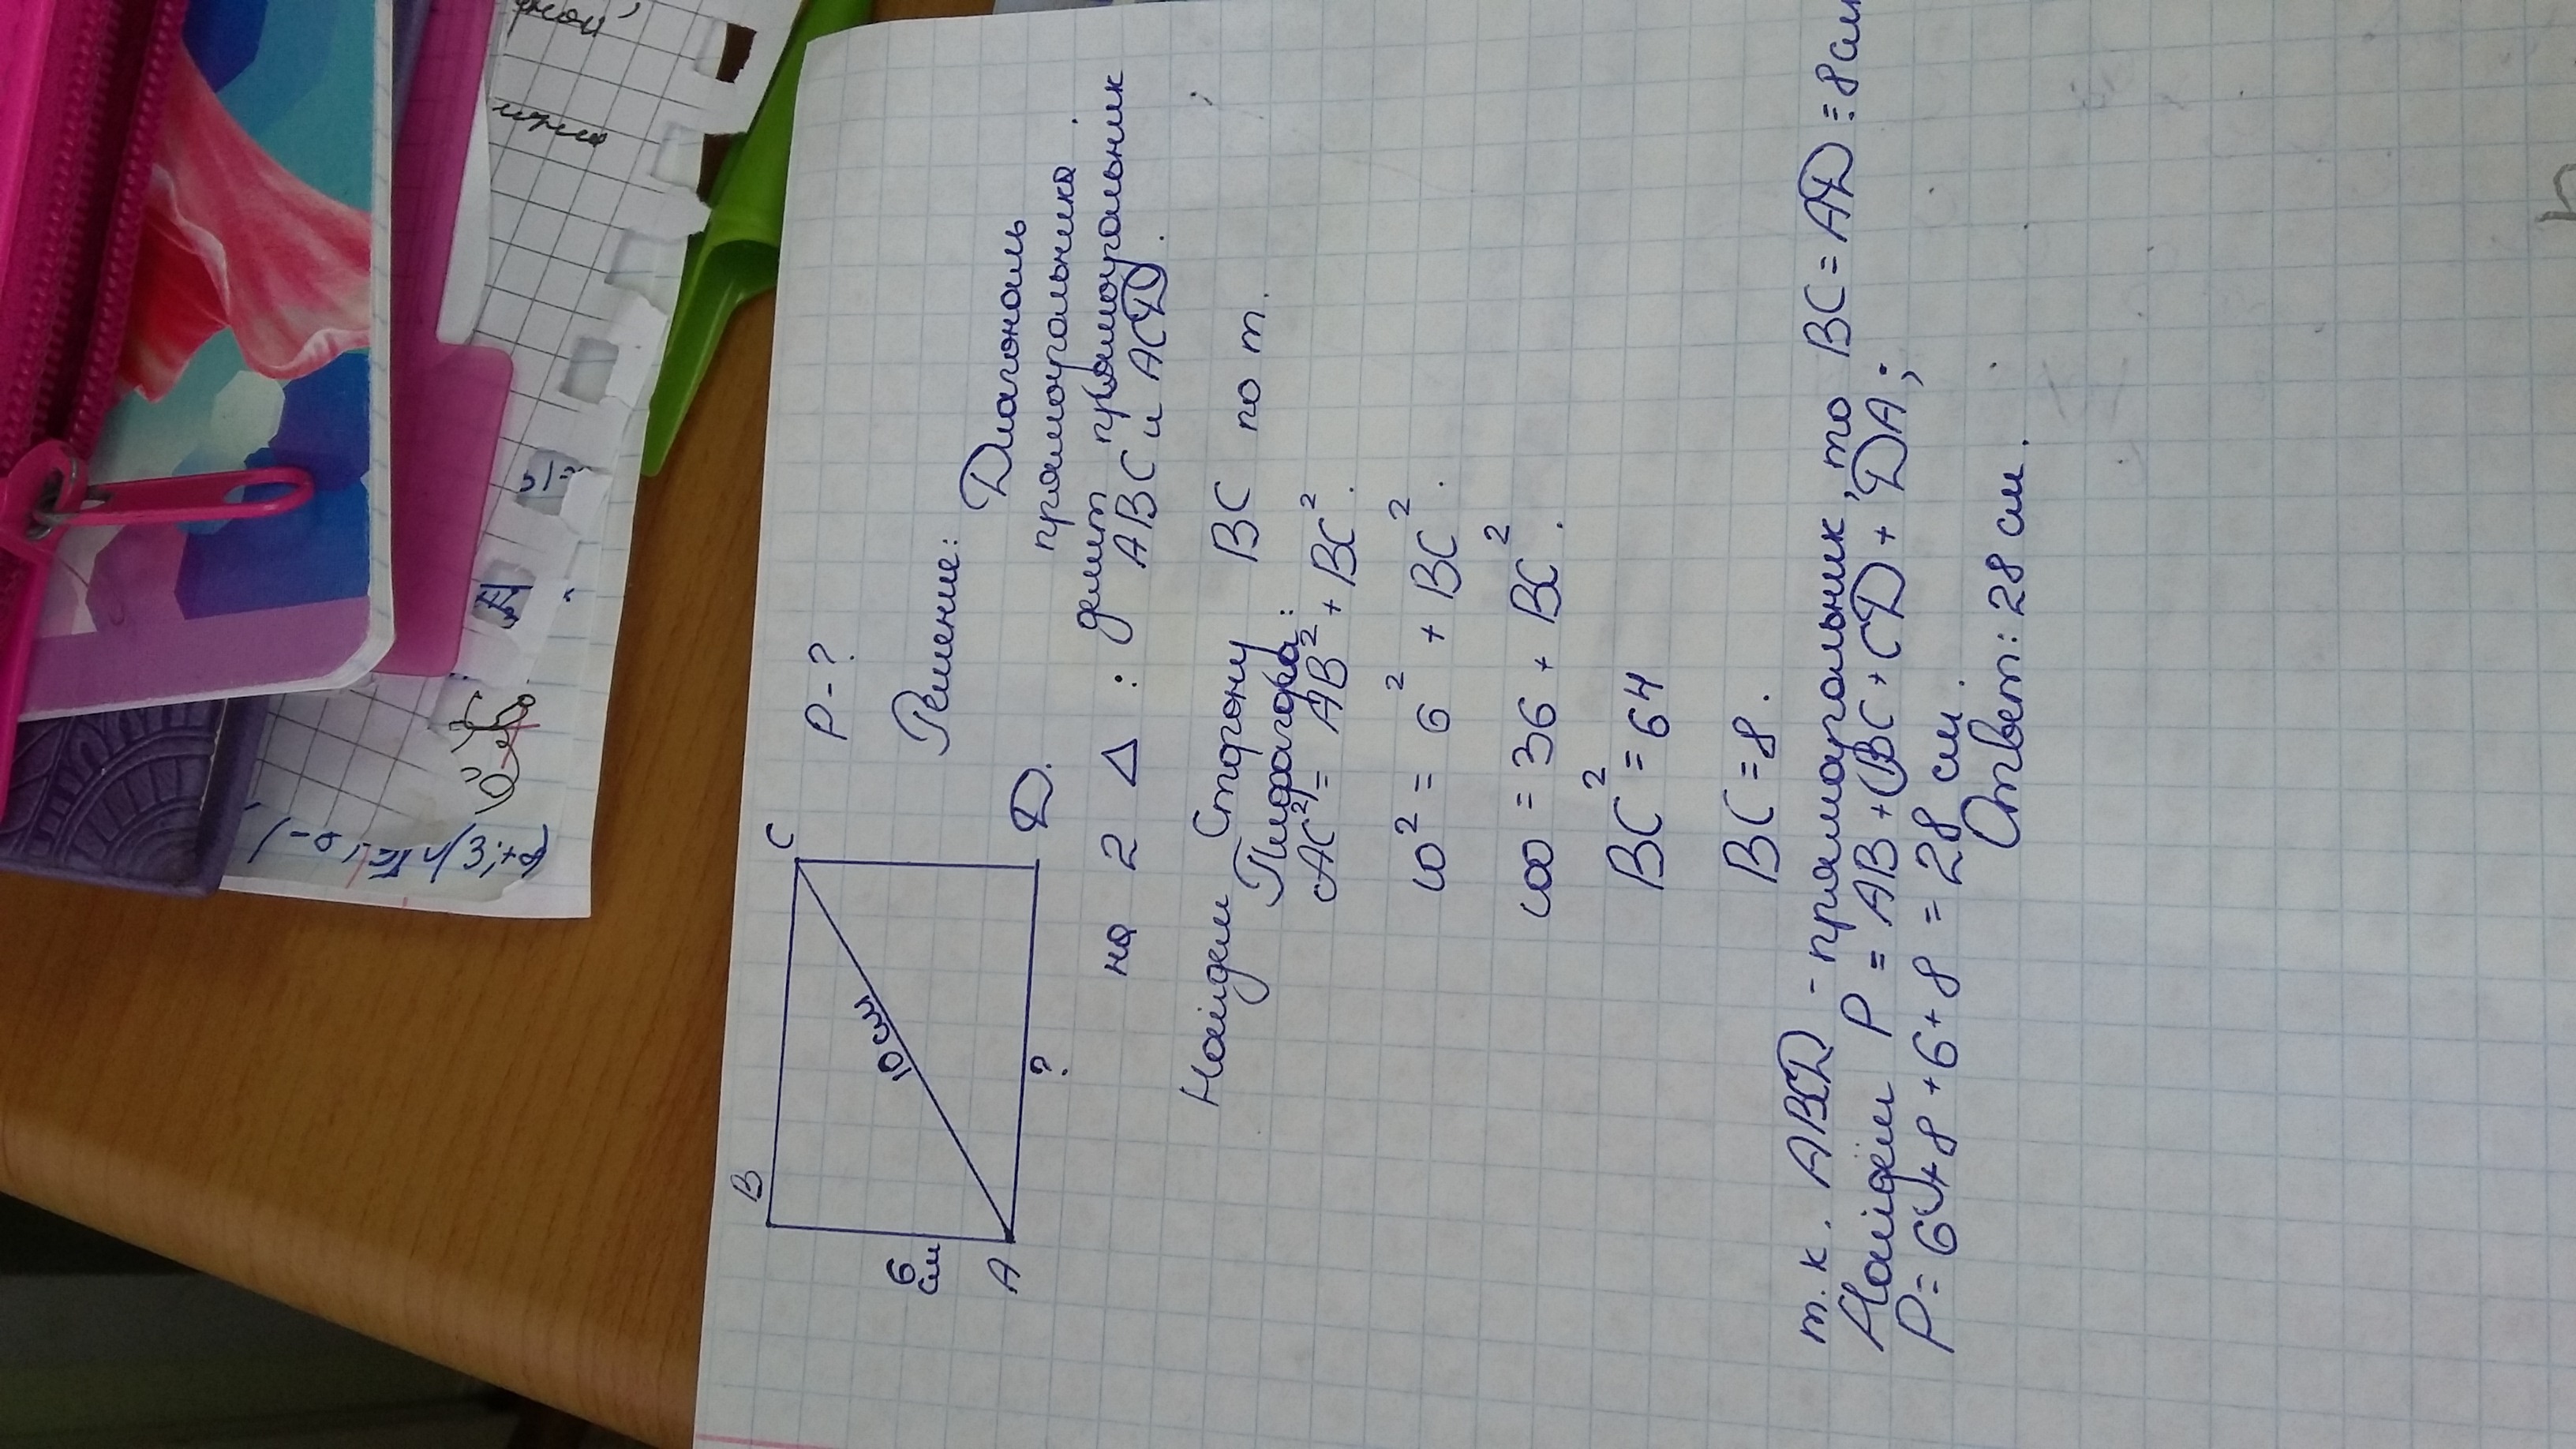 B
C
P-?
6
см
10 см
A
?
D.
Решение:
Диагональ
прямоугольника
на 2 Δ : делит прямоугольник
ABC и ACD.
Найдем Сторону BC по т.
Пифагора:
AC² = AB² + BC².
10² = 6² + BC².
100 = 36 + BC².
BC² = 64
BC = 8.
т.к. ABCD - прямоугольник, то BC = AD = 8 см
Найдём P = AB + BC + CD + DA;
P = 6 + 8 + 6 + 8 = 28 см.
Ответ: 28 см.